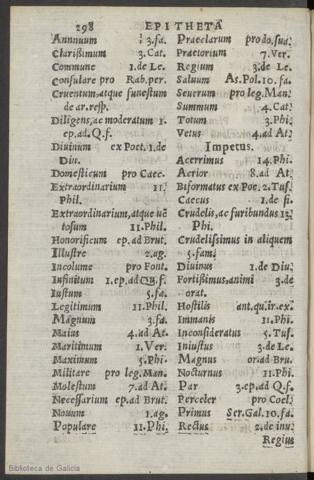 298 EPITHETA
Annuum 3.fa.
Clarißimum 3.Cat.
Commune 1.de Le.
Consulare pro Rab.per.
Cruentum,atque funestum
de ar.resp.
Diligens,ac moderatum 1.
ep.ad.Q.f.
Diuinum ex Poet.1.de
Diu.
Domesticum pro Caec.
Extraordinarium 11.
Phil.
Extraordinarium,atque uẽ
tosum 11.Phil.
Honorificum ep.ad Brut.
Illustre 2.ag.
Incolume pro Font.
Infinitum 1.ep.ad Qu.f.
Iustum 5.fa.
Legitimum 11.Phil.
Magnum 3.fa.
Maius 4.ad At.
Maritimum 1.Ver.
Maximum 5.Phi.
Militare pro leg.Man.
Molestum 7.ad At.
Necessarium ep.ad Brut.
Nouum 1.ag.
Populare 11.Phi.
Praeclarum pro do.sua.
Praetorium 7.Ver.
Regium 3.de Le.
Saluum As.Pol.10.fa.
Seuerum pro leg.Man.
Summum 4.Cat.
Totum 3.Phi.
Vetus 4.ad At.
Impetus.
Acerrimus 14.Phi.
Acrior 8.ad At.
Biformatus ex Poe.2.Tus.
Caecus 1.de fi.
Crudelis,ac furibundus 13.
Phi.
Crudelißimus in aliquem
5.fam.
Diuinus 1.de Diu.
Fortißimus,animi 3.de
orat.
Hostilis ant.qu.ir.ex.
Immanis 11.Phi.
Inconsideratus 5.Tus.
Iniustus 3.de Le.
Magnus or.ad Bru.
Nocturnus 11.Phi.
Par 3.ep.ad Q.f.
Perceler pro Coel.
Primus Ser.Gal.10.fa.
Rectus 2.de inu.
Regius
Biblioteca de Galicia